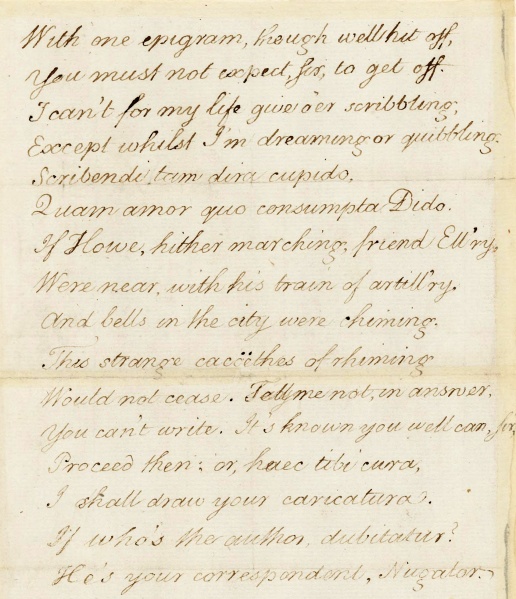 With one epigram, though well hit off,
You must not expect, sir, to get off.
I can't for my life give o'er scribbling,
Except whilst I'm dreaming or quibbling.
Scribendi tam dira cupido,
Quam amor quo consumpta Dido.
If Howe, hither marching, friend Ell'ry,
Were near, with his train of artill'ry.
And bells in the city were chiming.
This strange cacöethes of rhiming
Would not cease. Tell me not, in answer,
You can't write. It's known you well can, sir,
Proceed then: or, haec tibi cura,
I shall draw your caricatura.
If who's the author, dubitatur?
He's your correspondent, Nugator.